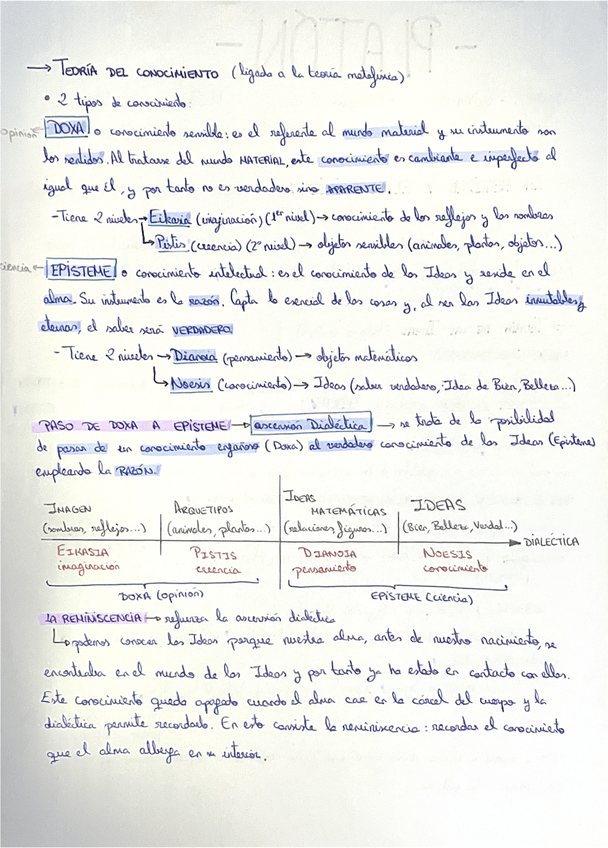 - PLATÓN -
→ TEORÍA DEL CONOCIMIENTO (ligada a la teoría metafísica)
• 2 tipos de conocimiento:
opinión DOXA o conocimiento sensible: es el referente al mundo material y su instrumento son
los sentidos. Al tratarse del mundo MATERIAL, este conocimiento es cambiante e imperfecto al
igual que él, y por tanto no es verdadero sino APARENTE.
- Tiene 2 niveles → Eikasia (imaginación) (1er nivel) → conocimiento de los reflejos y las sombras
↳ Pistis (creencia) (2º nivel) → objetos sensibles (animales, plantas, objetos...)
ciencia ← EPISTEME o conocimiento intelectual: es el conocimiento de las Ideas y reside en el
alma. Su instrumento es la razón. Capta lo esencial de las cosas y, al ser las Ideas inmutables y
eternas, el saber será VERDADERO
- Tiene 2 niveles → Dianoia (pensamiento) → objetos matemáticos
↳ Noesis (conocimiento) → Ideas (saber verdadero, Idea de Bien, Belleza...)
PASO DE DOXA A EPISTEME → ascensión Dialéctica → se trata de la posibilidad
de pasar de un conocimiento engañoso (Doxa) al verdadero conocimiento de las Ideas (Episteme)
empleando la RAZÓN.
IMAGEN ARQUETIPOS IDEAS MATEMÁTICAS IDEAS
(sombras, reflejos...) (animales, plantas...) (relaciones figuras...) (Bien, Belleza, Verdad...)
→ DIALÉCTICA
EIKASIA PISTIS DIANOIA NOESIS
imaginación creencia pensamiento conocimiento
DOXA (opinión) EPISTEME (ciencia)
LA REMINISCENCIA → refuerza la ascensión dialéctica
↳ podemos conocer las Ideas porque nuestra alma, antes de nuestro nacimiento, se
encontraba en el mundo de las Ideas y por tanto ya ha estado en contacto con ellas.
Este conocimiento queda apagado cuando el alma cae en la cárcel del cuerpo y la
dialéctica permite recordarlo. En esto consiste la reminiscencia: recordar el conocimiento
que el alma alberga en su interior.